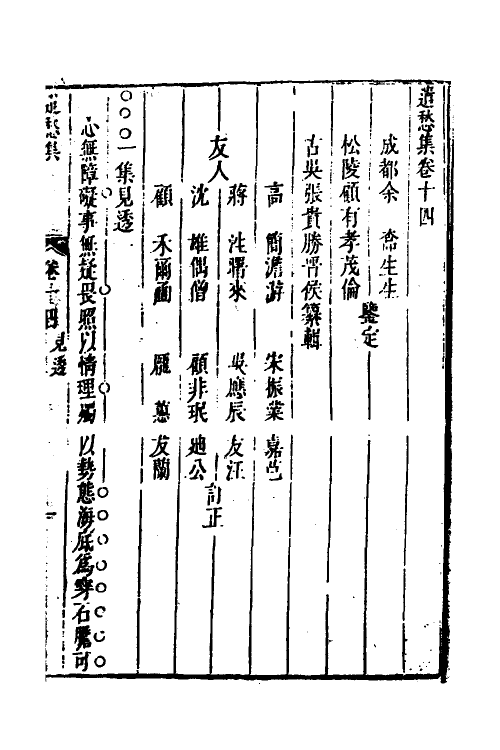 遣愁集卷十四
成都余 生生
松陵顧有孝茂倫
鑒定
古吳張貴勝晋侯纂輯
高 簡澹游 宋振業嘉邑
蔣 來 吳應辰友汪
友人
沈 雄偶僧 顧非珉迪公
訂正
顧 禾爾 龐 蕙友蘭
一集見透
心無障礙事無疑畏照以情理燭以勢態海底爲穿石壁可
遣愁集 卷十四 見透 一